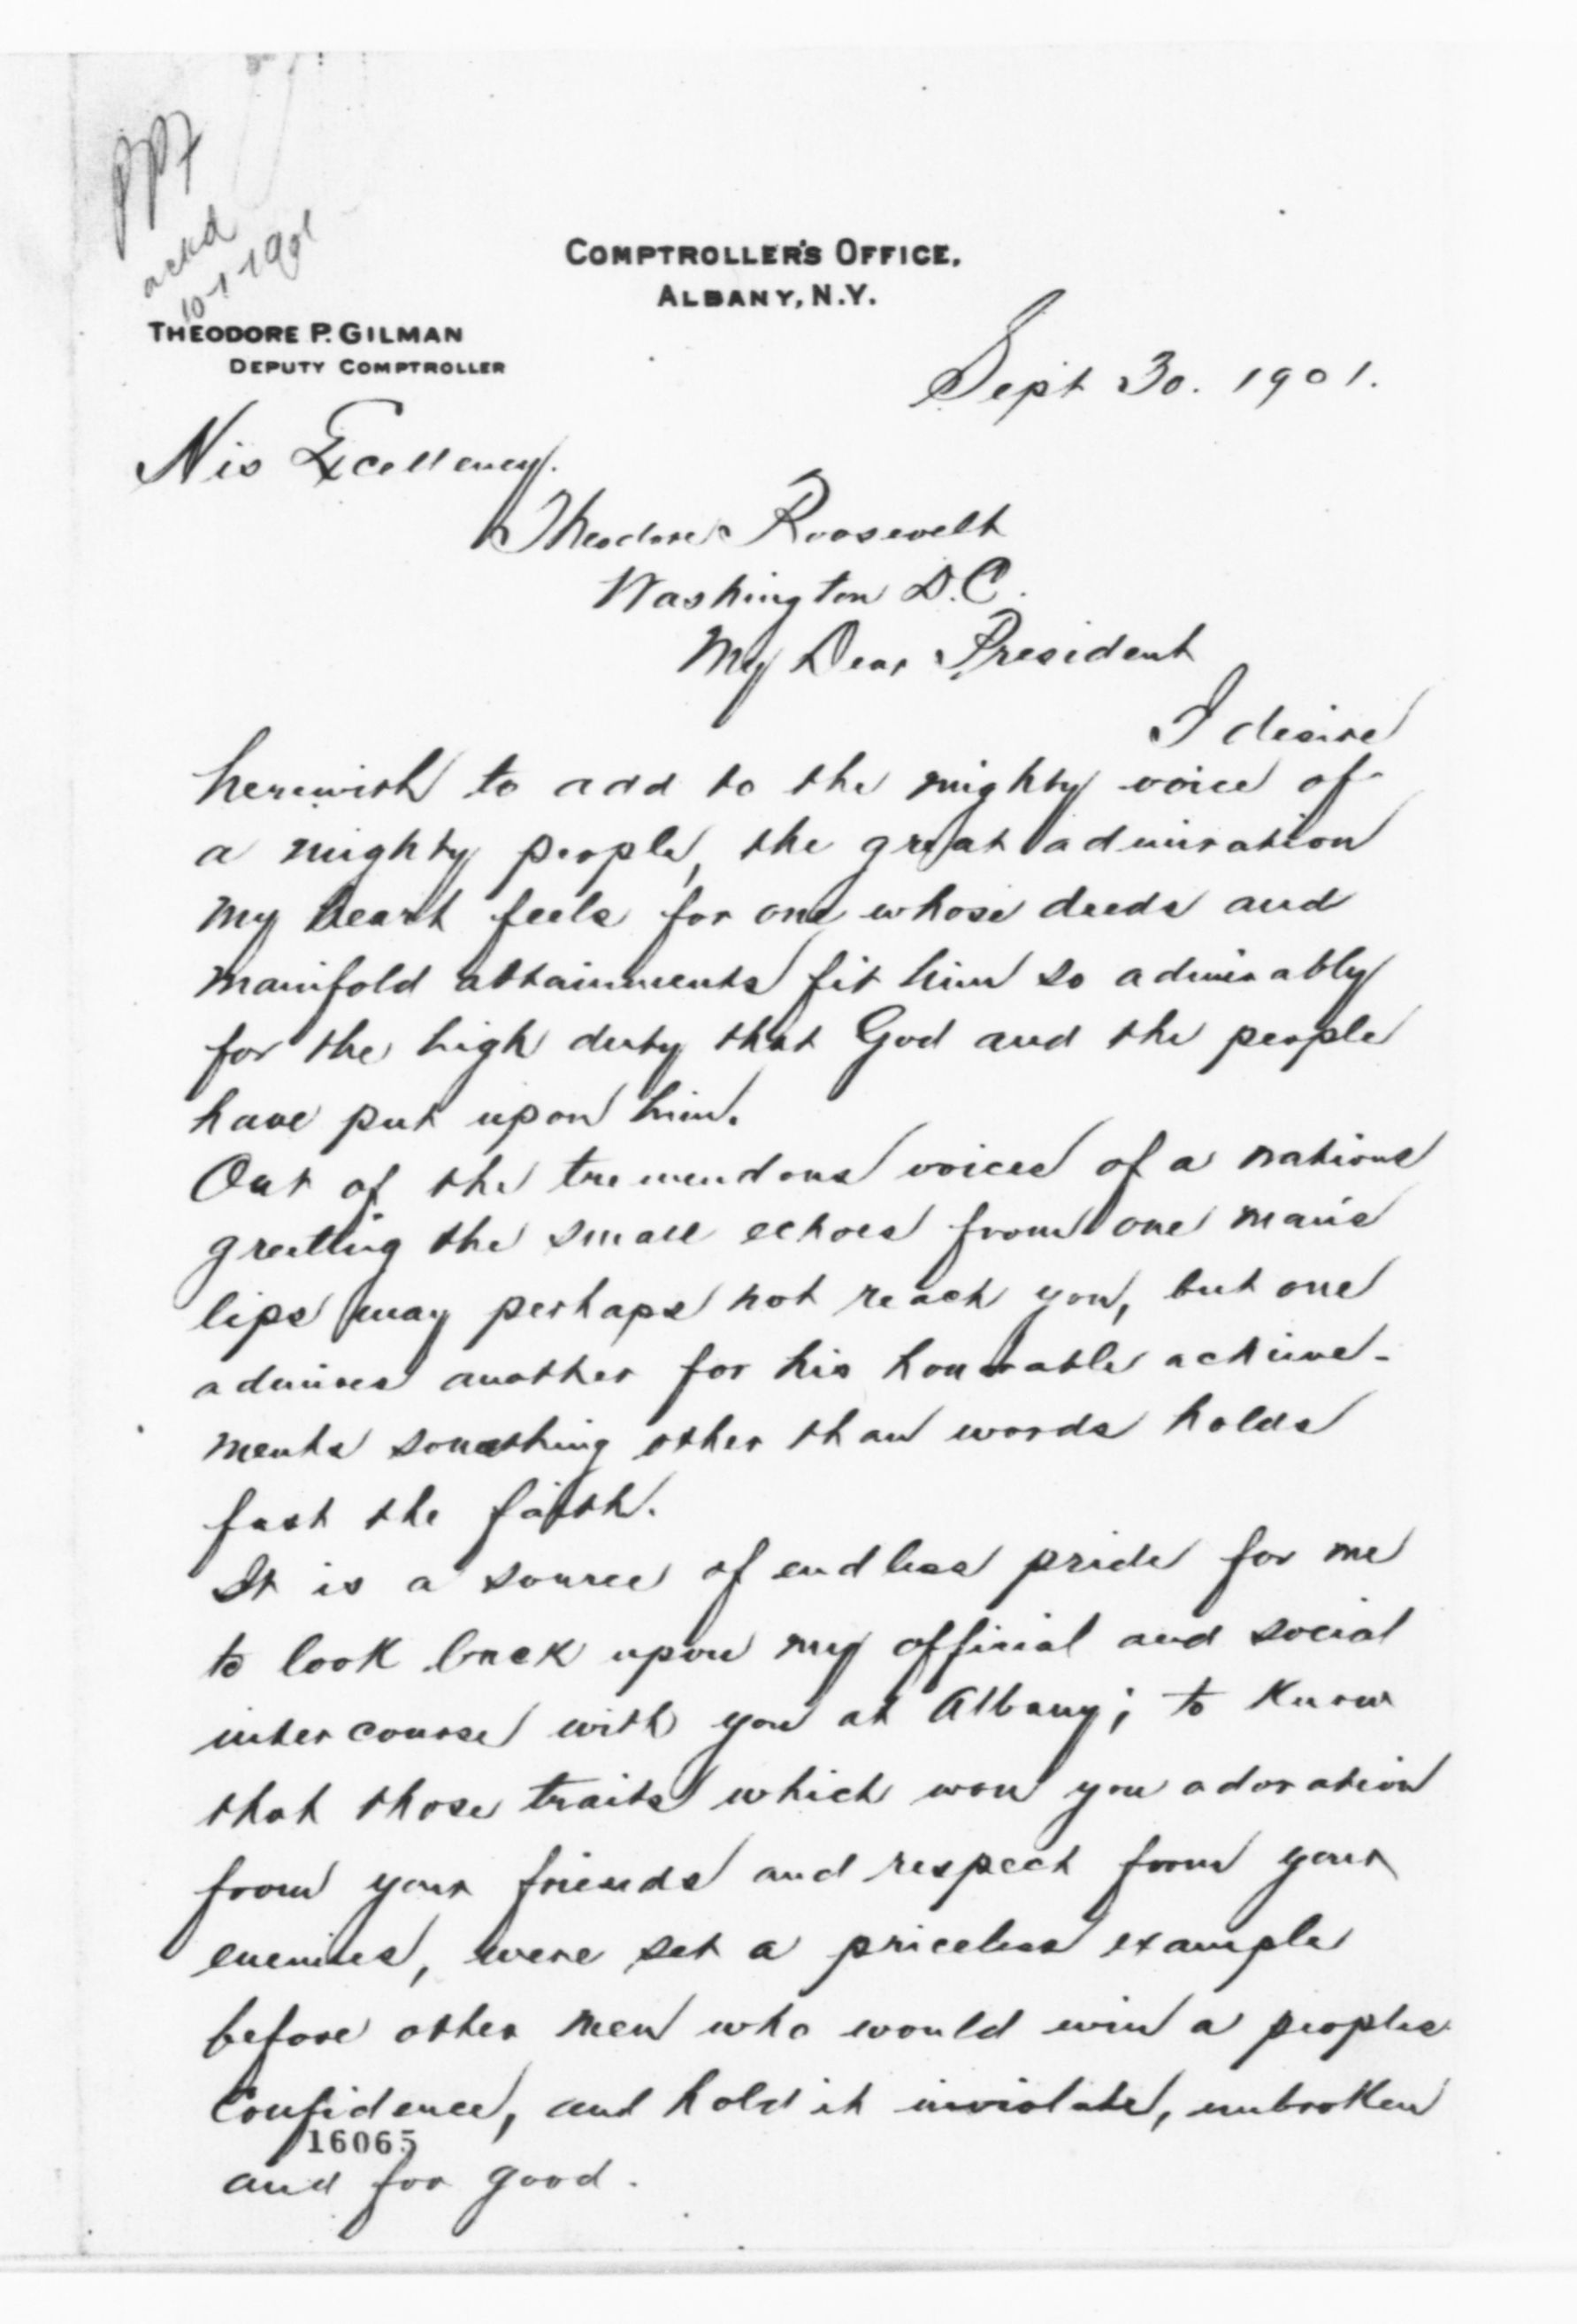 PPF
ackd
10-1-1901
COMPTROLLER'S OFFICE.
ALBANY, N.Y.
THEODORE P. GILMAN
DEPUTY COMPTROLLER
Sept 30. 1901.
His Excellency.
Theodore Roosevelt
Washington D.C.
My Dear President
I desire
herewith to add to the mighty voice of
a mighty people, the great admiration
my heart feels for one whose deeds and
manifold attainments fit him so admirably
for the high duty that God and the people
have put upon him.
Out of the tremendous voices of a nations
greeting the small echoes from one man's
lips may perhaps not reach you, but one
admires another for his honorable achieve-
ments something other than words holds
fast the faith.
It is a source of endless pride for me
to look back upon my official and social
intercourse with you at Albany; to know
that those traits which won you adoration
from your friends and respect from your
enemies, were set a priceless example
before other men who would win a peoples
confidence, and hold it inviolate, unbroken
16065
and for good.